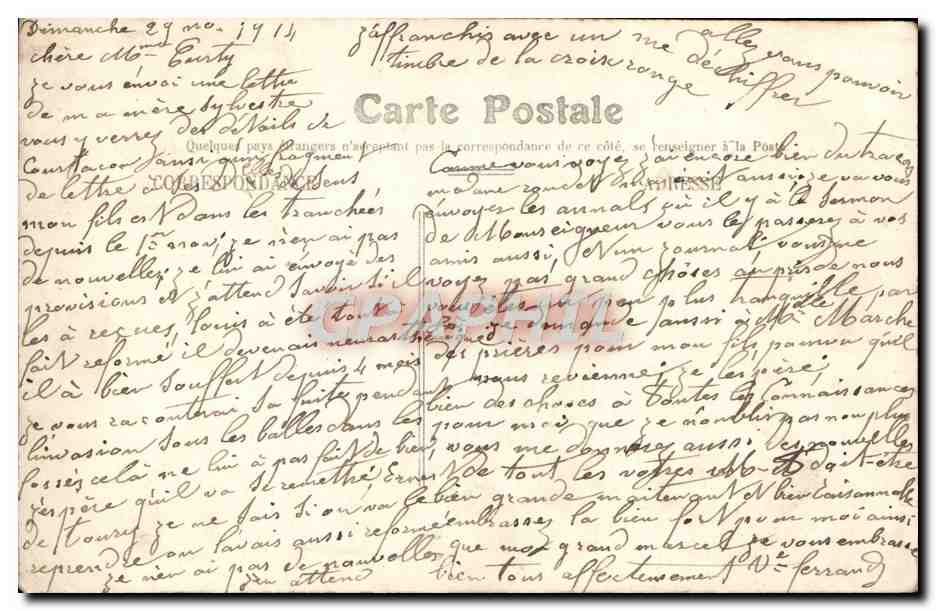 Dimanche 29 no. 1914
chère Mme Tourty
je vous envoi une lettre
de ma mère Sylvestre
vous y verrez des détails de
ainsi qun fragment
de lettre à
mon fils est dans les tranchées
depuis le 1er nov; je n'en ai pas
de nouvelles je lui ai envoyé des
provisions et j'attend savoir si il
les à reçues, Louis à été tout à
fait reformé il devenais neurasthénique
il à bien souffert depuis 4 mois
je vous raconterai sa fuite pendant
l'invasion sous les balles dans les
fossés celà ne lui à pas fait de bien
j'espère qu'il va se remettre, Ernest
de Toury je ne sais si on va le
reprendre on l'avais aussi reformé
je n'en ai pas de nouvelles
j'en attend
j'affranchis avec un
timbre de la croix rouge
allez vous pouvoir
me déchiffrer
Carte Postale
Quelques pays étrangers n'acceptant pas la correspondance de ce côté, se renseigner à la Poste
CORRESPONDANCE
ADRESSE
Comme vous voyez j'ai encore bien du tracas
madame aussi je va vous
envoyer les annals où il y à le Sermon
de Monseigneur vous le passerez à vos
amis aussi, et un journal vous ne
voyez pas grand chôses auprès de nous
vous êtes un peu plus tranquille par
là je demande aussi à Mle Marche
des prières pour mon fils pauvre qu'il
nous revienne, je l'espère,
bien des choses à toutes les connaissances
pour moi, que je n'oublis pas non plus
vous me donnerez aussi des nouvelles
de tout les votres doit être
bien grande maitenant et bien raisonnable
embrassez la bien fort pour moi ainsi
que mon grand marcel je vous embrasse
bien tous affectueusement Ve Ferrand
CPAPHIL